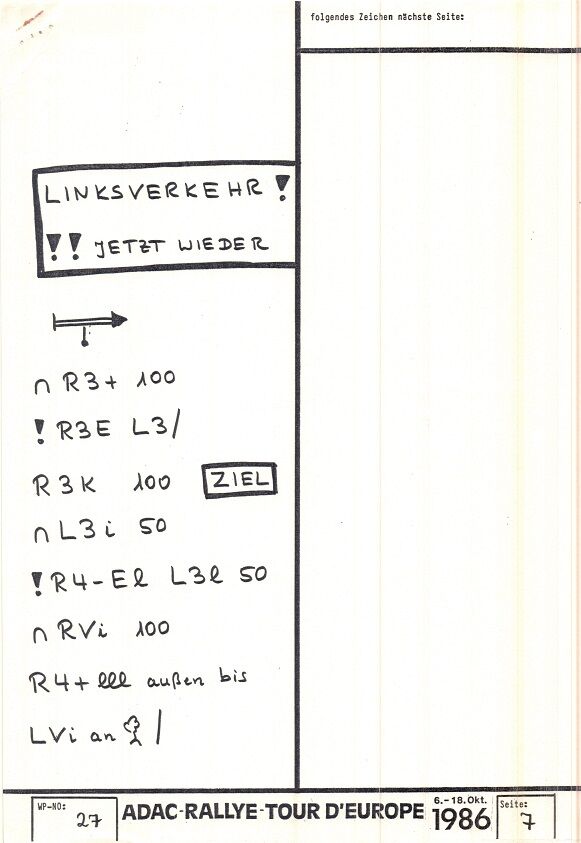 folgendes Zeichen nächste Seite:
LINKSVERKEHR !
!! JETZT WIEDER
n R3+ 100
! R3E L3/
R3K 100 ZIEL
n L3i 50
! R4-El L3l 50
n RVi 100
R4+ lll außen bis
LVi an /
WP-NO: 27
ADAC-RALLYE-TOUR D'EUROPE
6.-18.Okt. 1986
Seite: 7